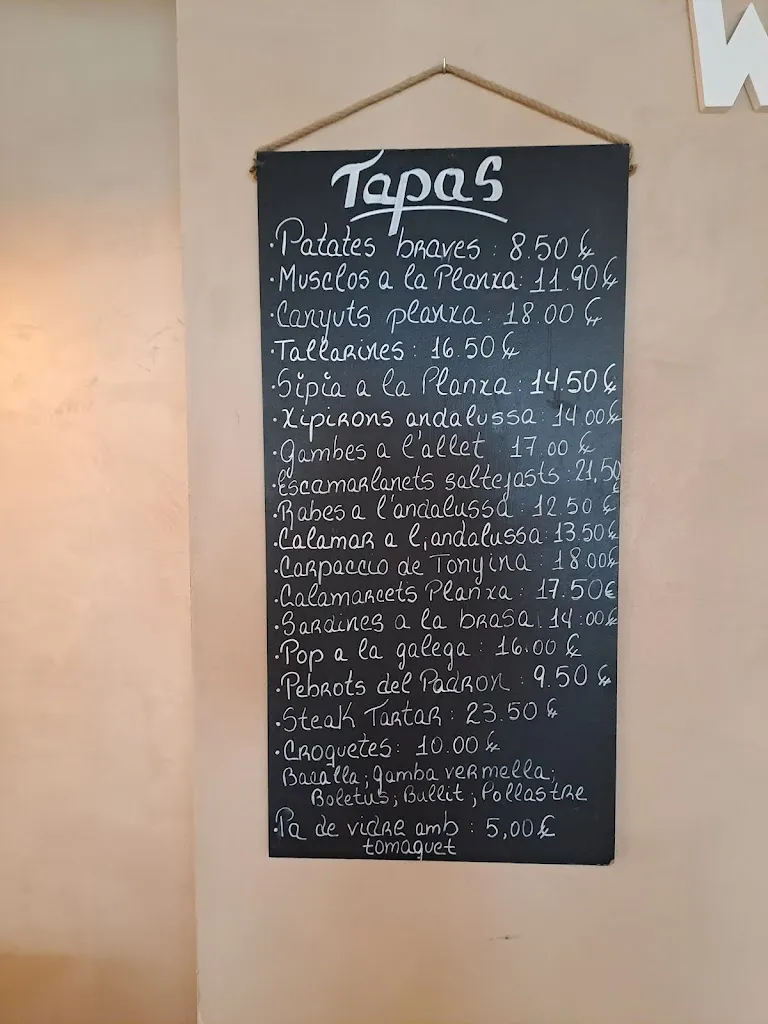 W
Tapas
·Patates braves : 8.50 €
·Musclos a la Planxa: 11.90 €
·Canyuts planxa : 18.00 €
·Tallarines : 16.50 €
·Sipia a la Planxa : 14.50 €
·Xipirons andalussa : 14.00€
·Gambes a l'allet 17.00 €
·Escamarlanets saltejats : 21,50 €
·Rabes a l'andalussa : 12.50 €
·Calamar a l,andalussa: 13.50€
·Carpaccio de Tonyina : 18.00€
·Calamarcets Planxa : 17.50€
·Sardines a la brasa : 14.00€
·Pop a la galega : 16.00 €
·Pebrots del Padron : 9.50 €
·Steak Tartar : 23.50 €
·Croquetes: 10.00 €
Bacalla; gamba vermella;
Boletus; Bullit ; Pollastre
·Pa de vidre amb : 5,00€
tomaquet